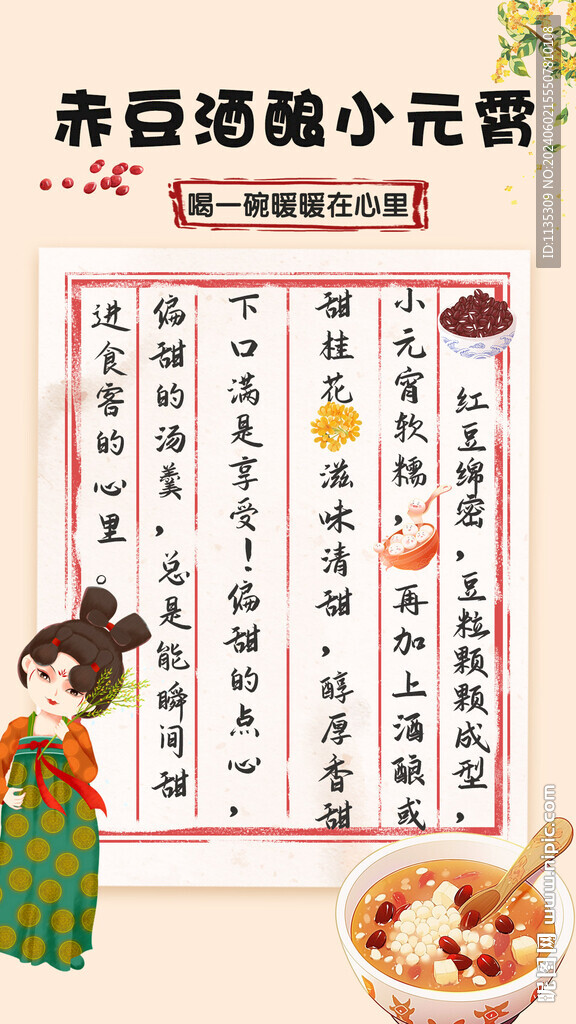 赤豆酒酿小元宵
喝一碗暖暖在心里
红豆绵密，豆粒颗颗成型，
小元宵软糯，再加上酒酿或
甜桂花滋味清甜，醇厚香甜
下口满是享受！偏甜的点心，
偏甜的汤羹，总是能瞬间甜
进食客的心里。
ID:1135309 NO:20240602155507810108
昵图网 www.nipic.com